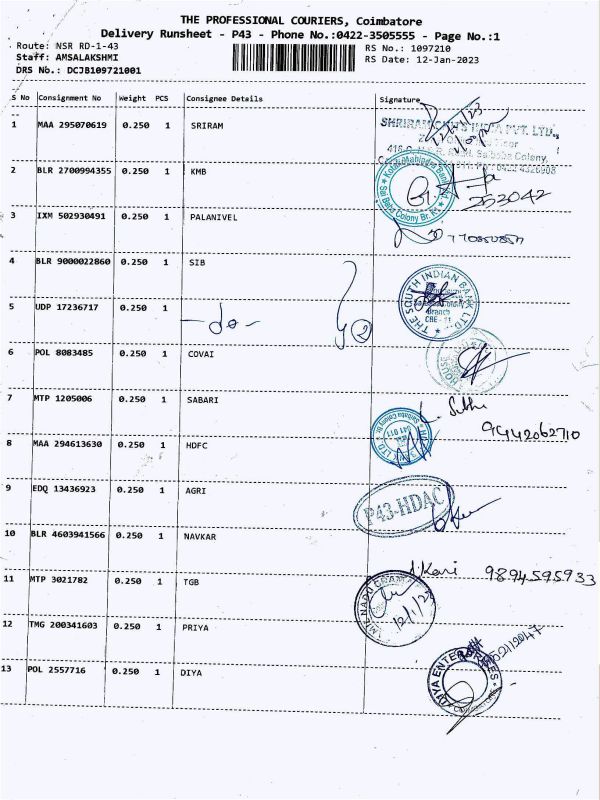 THE PROFESSIONAL COURIERS, Coimbatore
Delivery Runsheet - P43 - Phone No.:0422-3505555 - Page No.:1
Route: NSR RD-1-43
RS No.: 1097210
Staff: AMSALAKSHMI
RS Date: 12-Jan-2023
DRS No.: DCJB109721001
S No Consignment No Weight PCS Consignee Details Signature
1 MAA 295070619 0.250 1 SRIRAM
PVT. LTD.,
Saibaba Colony,
2 BLR 2700994355 0.250 1 KMB
Sai Baba Colony Br.
252042
3 IXM 502930491 0.250 1 PALANIVEL
4 BLR 9000022860 0.250 1 SIB
THE SOUTH INDIAN BANK LTD.
Branch
CBE - 11
5 UDP 17236717 0.250 1 -do- 2
6 POL 8083485 0.250 1 COVAI
HOUSE
7 MTP 1205006 0.250 1 SABARI
9442062710
8 MAA 294613630 0.250 1 HDFC
9 EDQ 13436923 0.250 1 AGRI
P43-HDAC
10 BLR 4603941566 0.250 1 NAVKAR
Kani 9894595933
11 MTP 3021782 0.250 1 TGB
12/1/23
12 TMG 200341603 0.250 1 PRIYA
13 POL 2557716 0.250 1 DIYA
DIYA ENTERPRISES
COIMBATORE